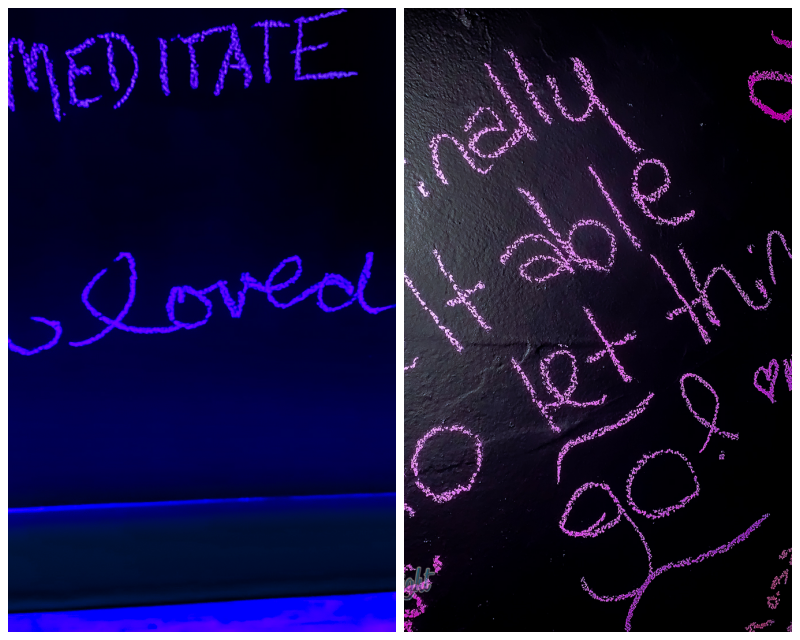 MEDITATE
loved
inally
lt able
o let thin
go!